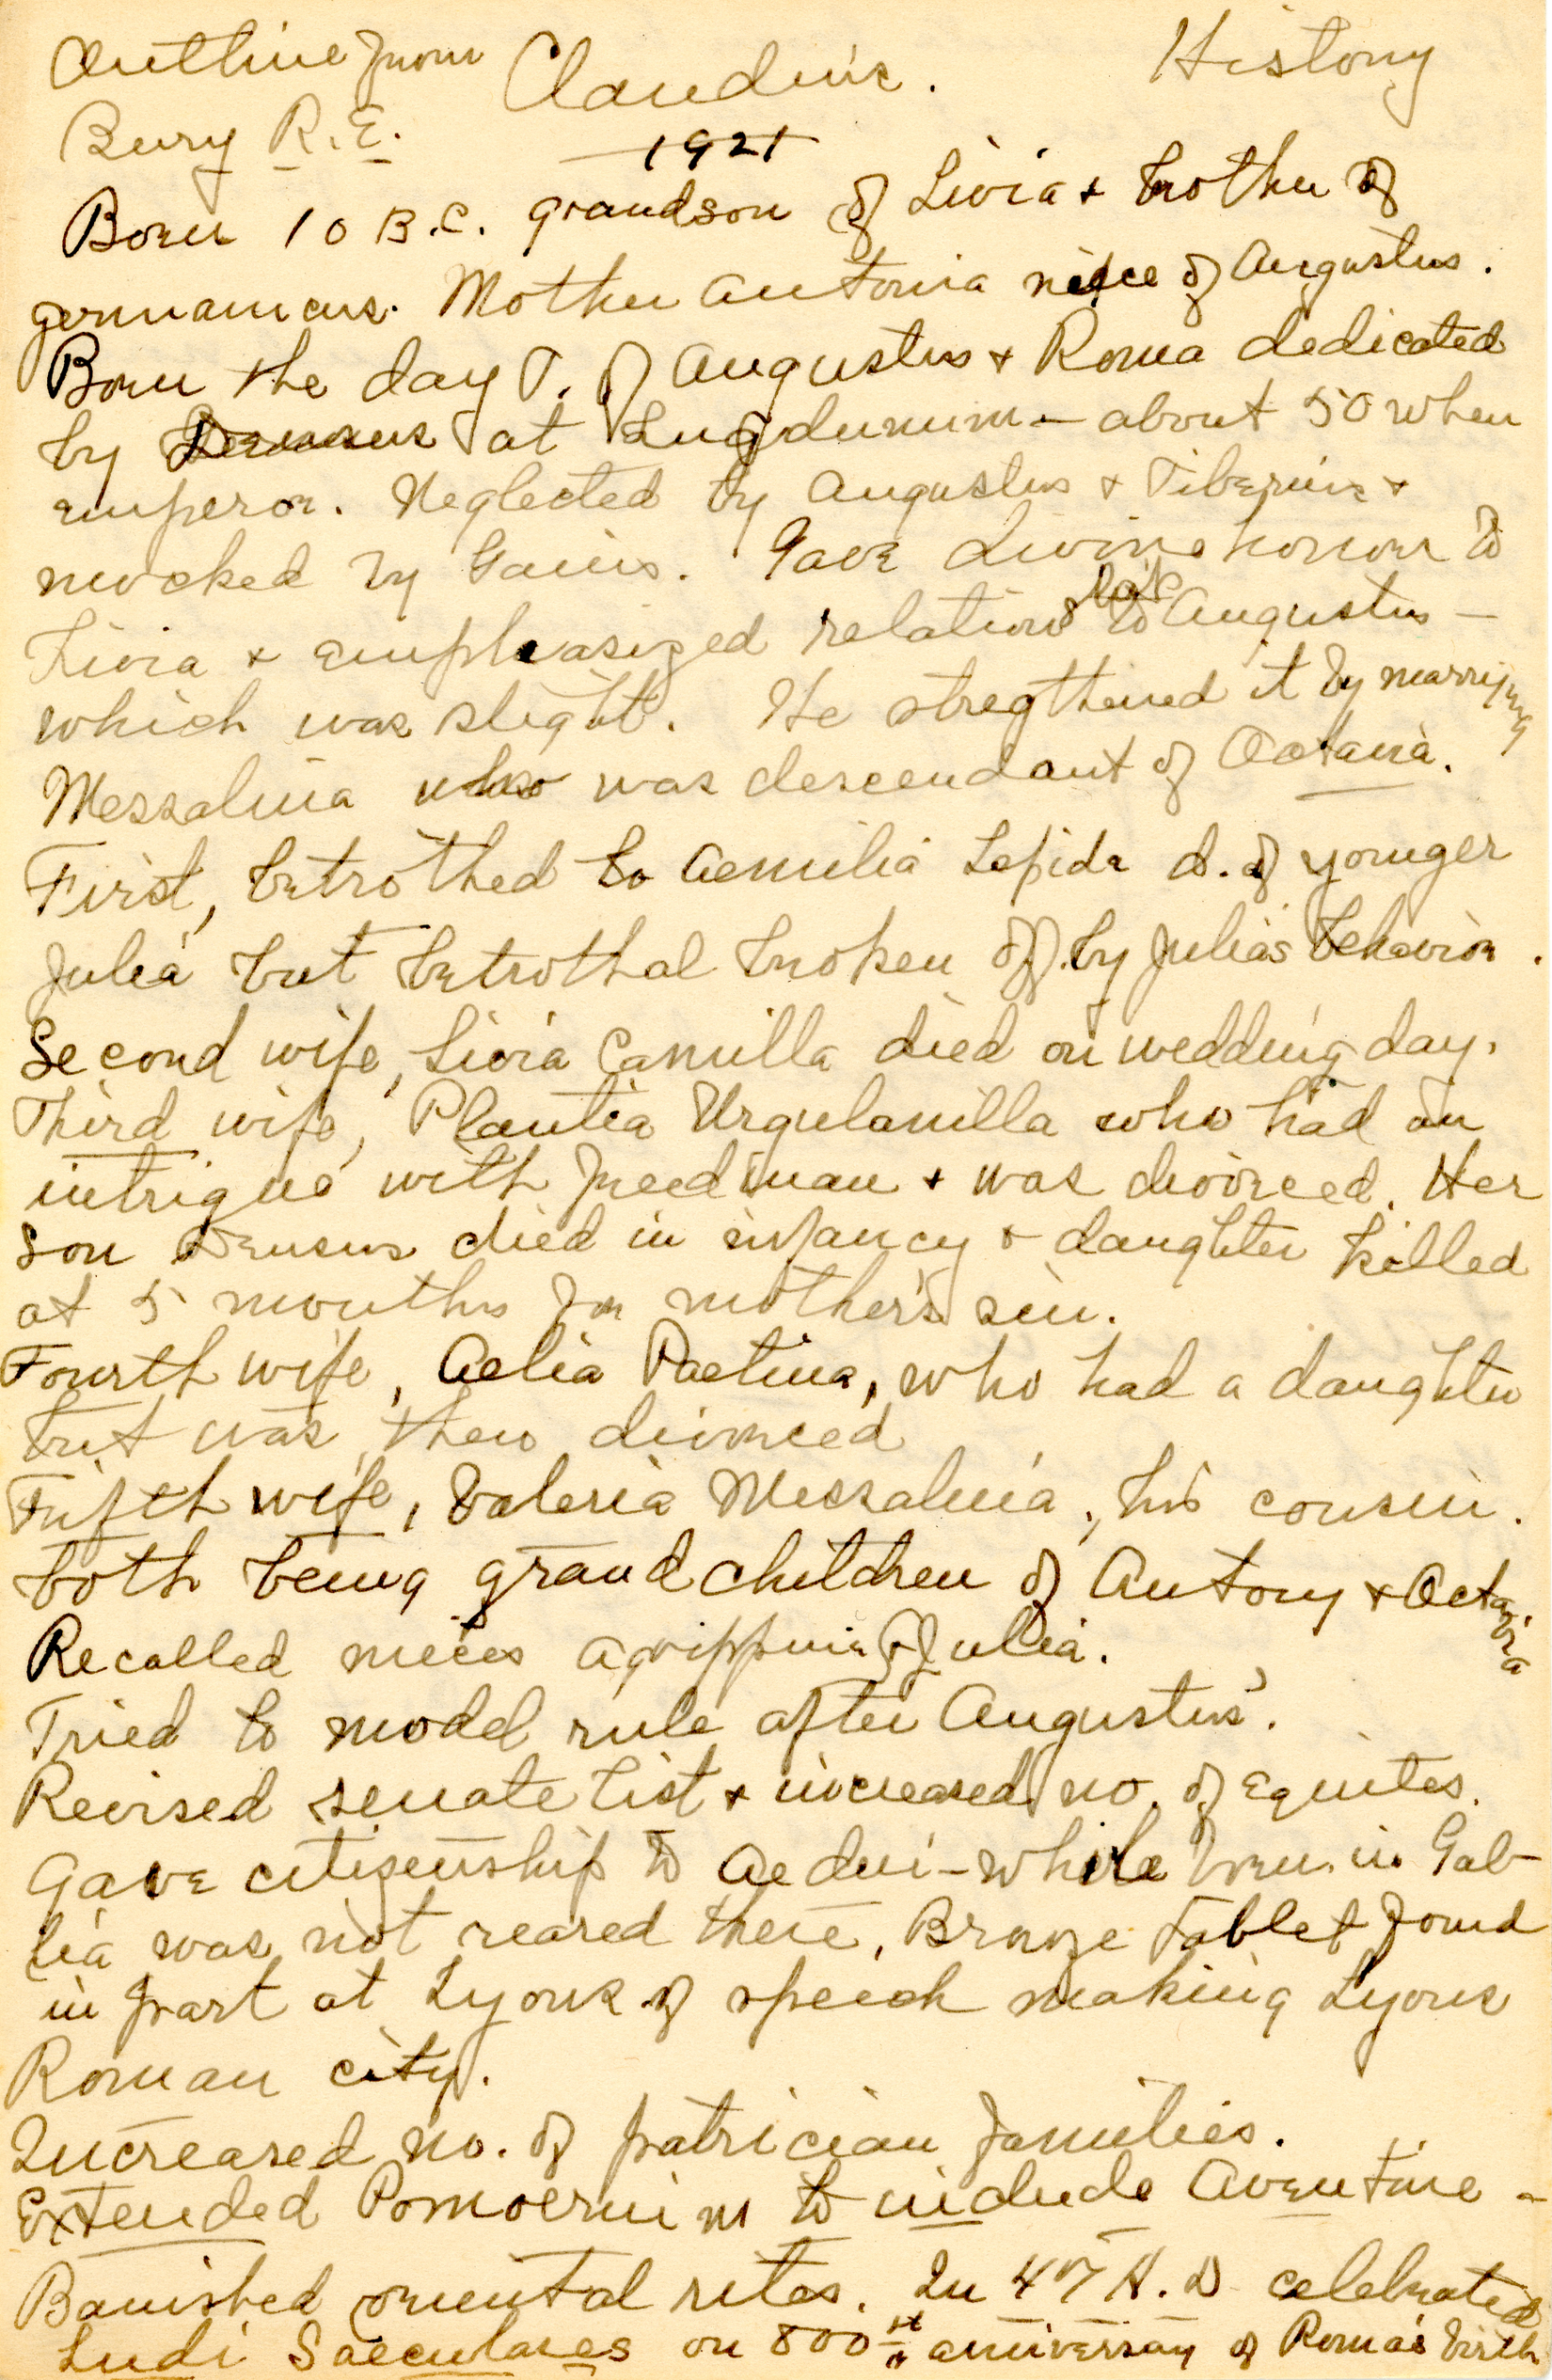 Outline from Claudius. History
Bury R.E.
1921
Born 10 B.C. grandson of Livia & brother of
Germanicus. Mother Antonia niece of Augustus.
Born the day T. of Augustus & Roma dedicated
by Drusus at Lugdunum - about 50 when
emperor. Neglected by Augustus & Tiberius &
mocked by Gaius. Gave divine honor to
Livia & emphasized relations to Augustus -
which was slight. He stregthened it by marrying
Messalina who was descendant of Octavia.
First, betrothed to Aemilia Lepida d. of younger
Julia but betrothal broken off by Julia's behavior.
Second wife, Livia Camilla died on wedding day.
Third wife, Plautia Urgulanilla who had an
intrigue with freedman & was divorced. Her
son Drusus died in infancy & daughter killed
at 5 months for mother's sin.
Fourth wife, Aelia Paetina, who had a daughter
but was then divorced
Fifth wife, Valeria Messalina, his cousin.
both being grandchildren of Antony & Octavia
Recalled nieces Agrippina & Julia.
Tried to model rule after Augustus'.
Revised senate list & increased no. of Equites.
Gave citizenship to Aedui - while born in Gal-
lia was not reared there. Bronze tablet found
in part at Lyons of speech making Lyons
Roman city.
Increased no. of patrician families.
Extended Pomoerium to include Aventine -
Banished oriental rites. In 47 A.D celebrated
Ludi Saeculares on 800st anniversary of Roma's birth